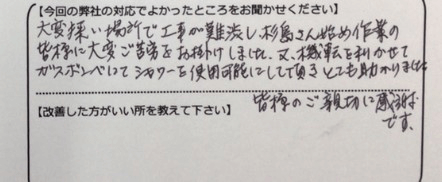 【今回の弊社の対応でよかったところをお聞かせください】
大変狭い場所で工事が難渋し、杉島さん始め作業の
皆様に大変ご苦労をお掛けしました。又、機転を利かせて
ガスボンベにてシャワーを使用可能にして頂きとても助かりました
皆様のご親切に感謝
です。
【改善した方がいい所を教えて下さい】